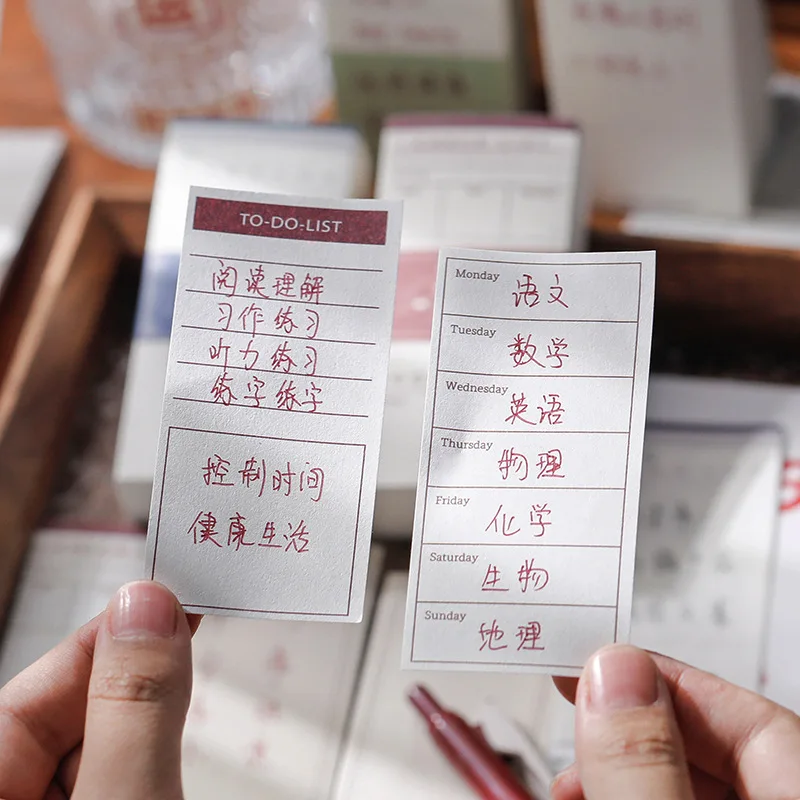 TO-DO-LIST
阅读理解
习作练习
听力练习
练字练字
控制时间
健康生活
Monday 语文
Tuesday 数学
Wednesday 英语
Thursday 物理
Friday 化学
Saturday 生物
Sunday 地理